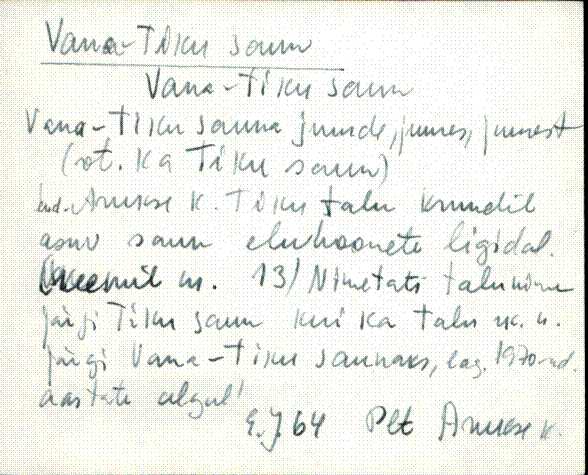 Vana-Tiku saun
Vana-Tiku saun
Vana-Tiku sauna juurde, juures, juurest
(vt. ka Tiku saun)
end. Aruküse k. Tiku talu krundil
asuv saun eluhoonete ligidal.
(Skeemil nr. 13) Nimetati talu nime
järgi Tiku saun kui ka talu r. n.
järgi Vana-Tiku saunaks, lag. 1970-nd.
aastate algul
E.J. 64 Plt Aruküse k.